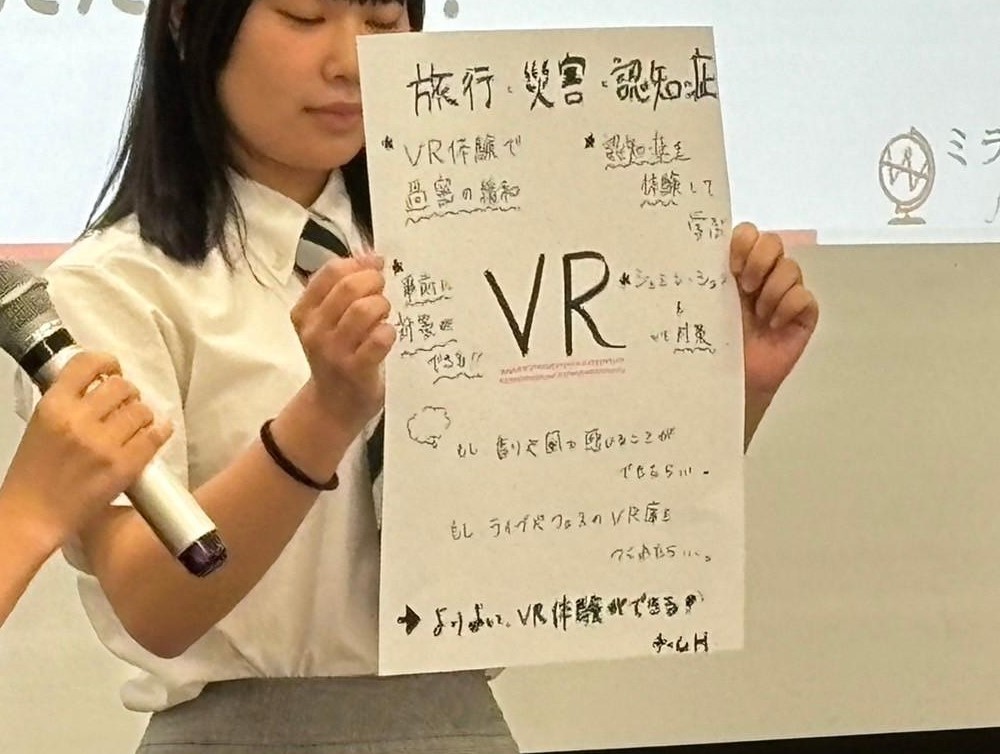 旅行、災害、認知症
*VR体験で
過密の緩和
*認知症を
体験して
学ぶ
*事前に
できる!!
VR
*シュミレーション
も対策
もし香りや風も感じることが
できたら…。
もしライブやフェスのVR席を
つくれたら…。
→よりよい、VR体験ができる
ミラ